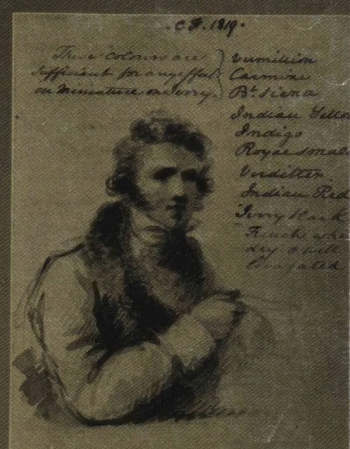 C F. 1819.
These colours are
sufficient for any effect
on Miniature on Ivory.
Vermillion
Carmine
Bt. Siena
Indian Yello
Indigo
Royal smal
Verditer
Indian Red
Ivory black
French whi
dry & well